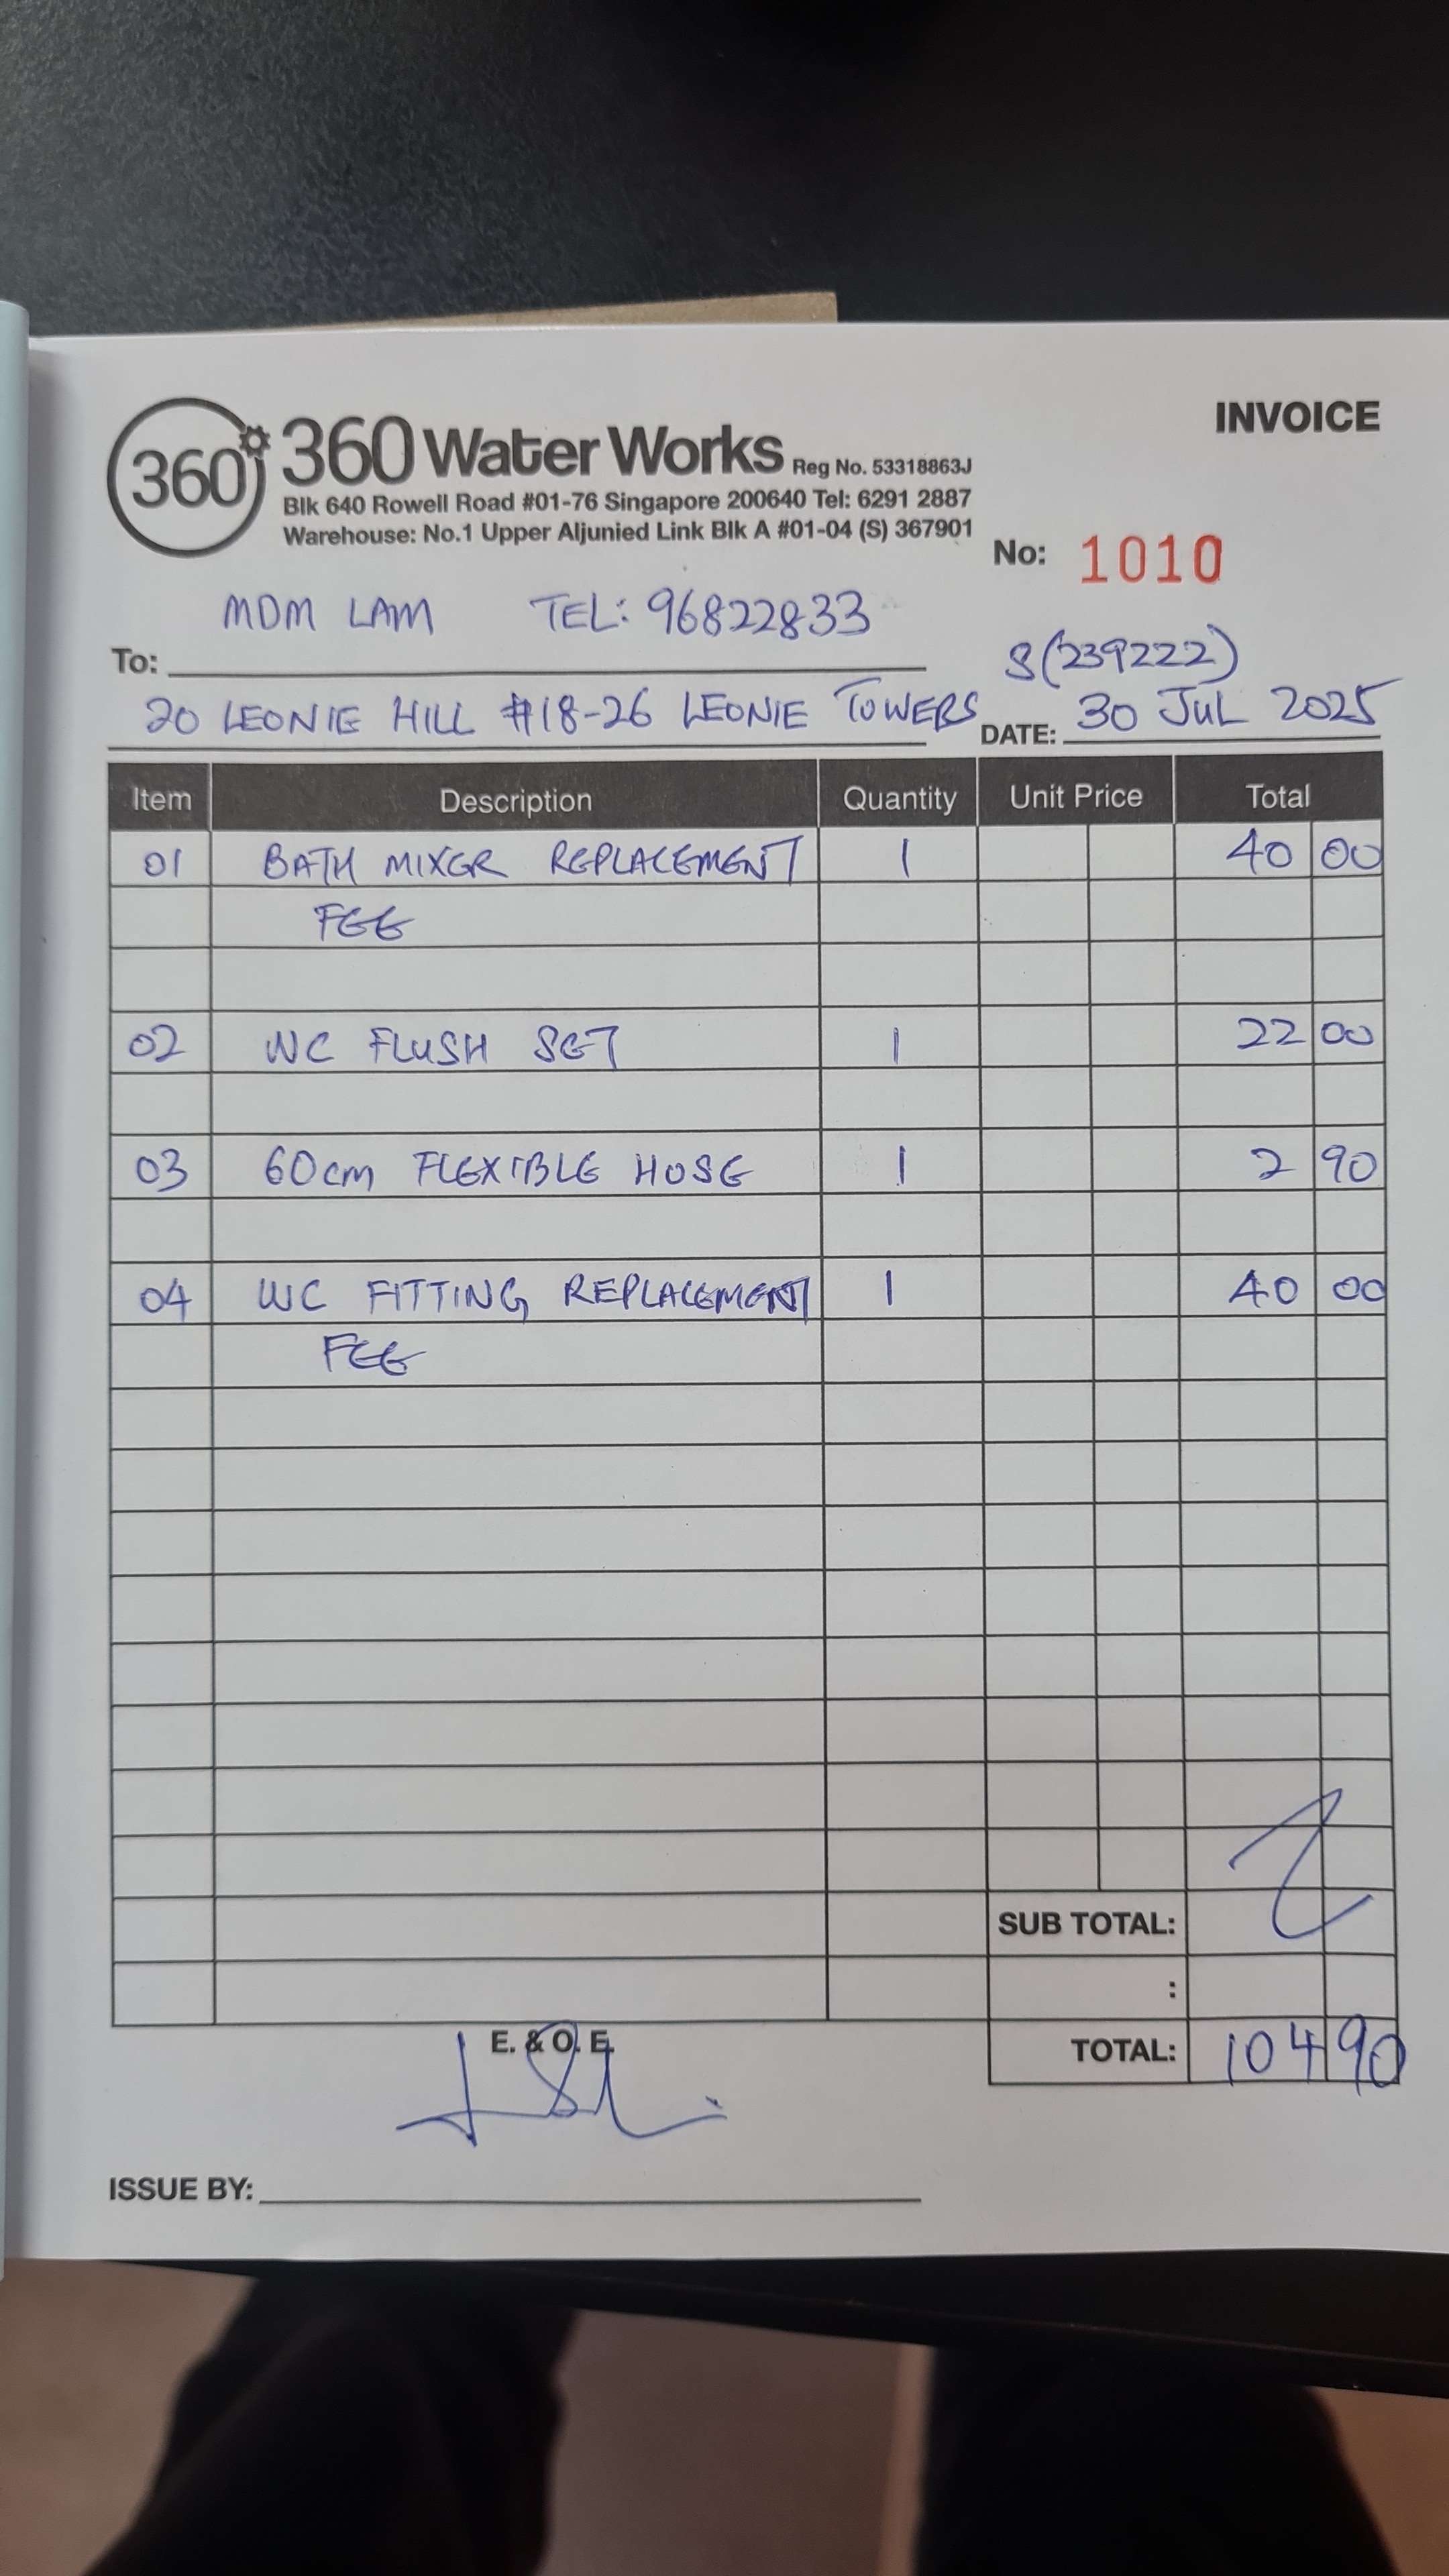 INVOICE
360 360 Water Works Reg No. 53318863J
Blk 640 Rowell Road #01-76 Singapore 200640 Tel: 6291 2887
Warehouse: No.1 Upper Aljunied Link Blk A #01-04 (S) 367901
No: 1010
MDM LAM TEL: 96822833
To:
S(239222)
20 LEONIE HILL #18-26 LEONIE TOWERS
DATE: 30 JUL 2025
Item Description Quantity Unit Price Total
01 BATH MIXER REPLACEMENT 1 40 00
FEE
02 WC FLUSH SET 1 22 00
03 60cm FLEXIBLE HOSE 1 2 90
04 WC FITTING REPLACEMENT 1 40 00
FEE
SUB TOTAL:
:
E. & O. E.
TOTAL: 104 90
ISSUE BY: